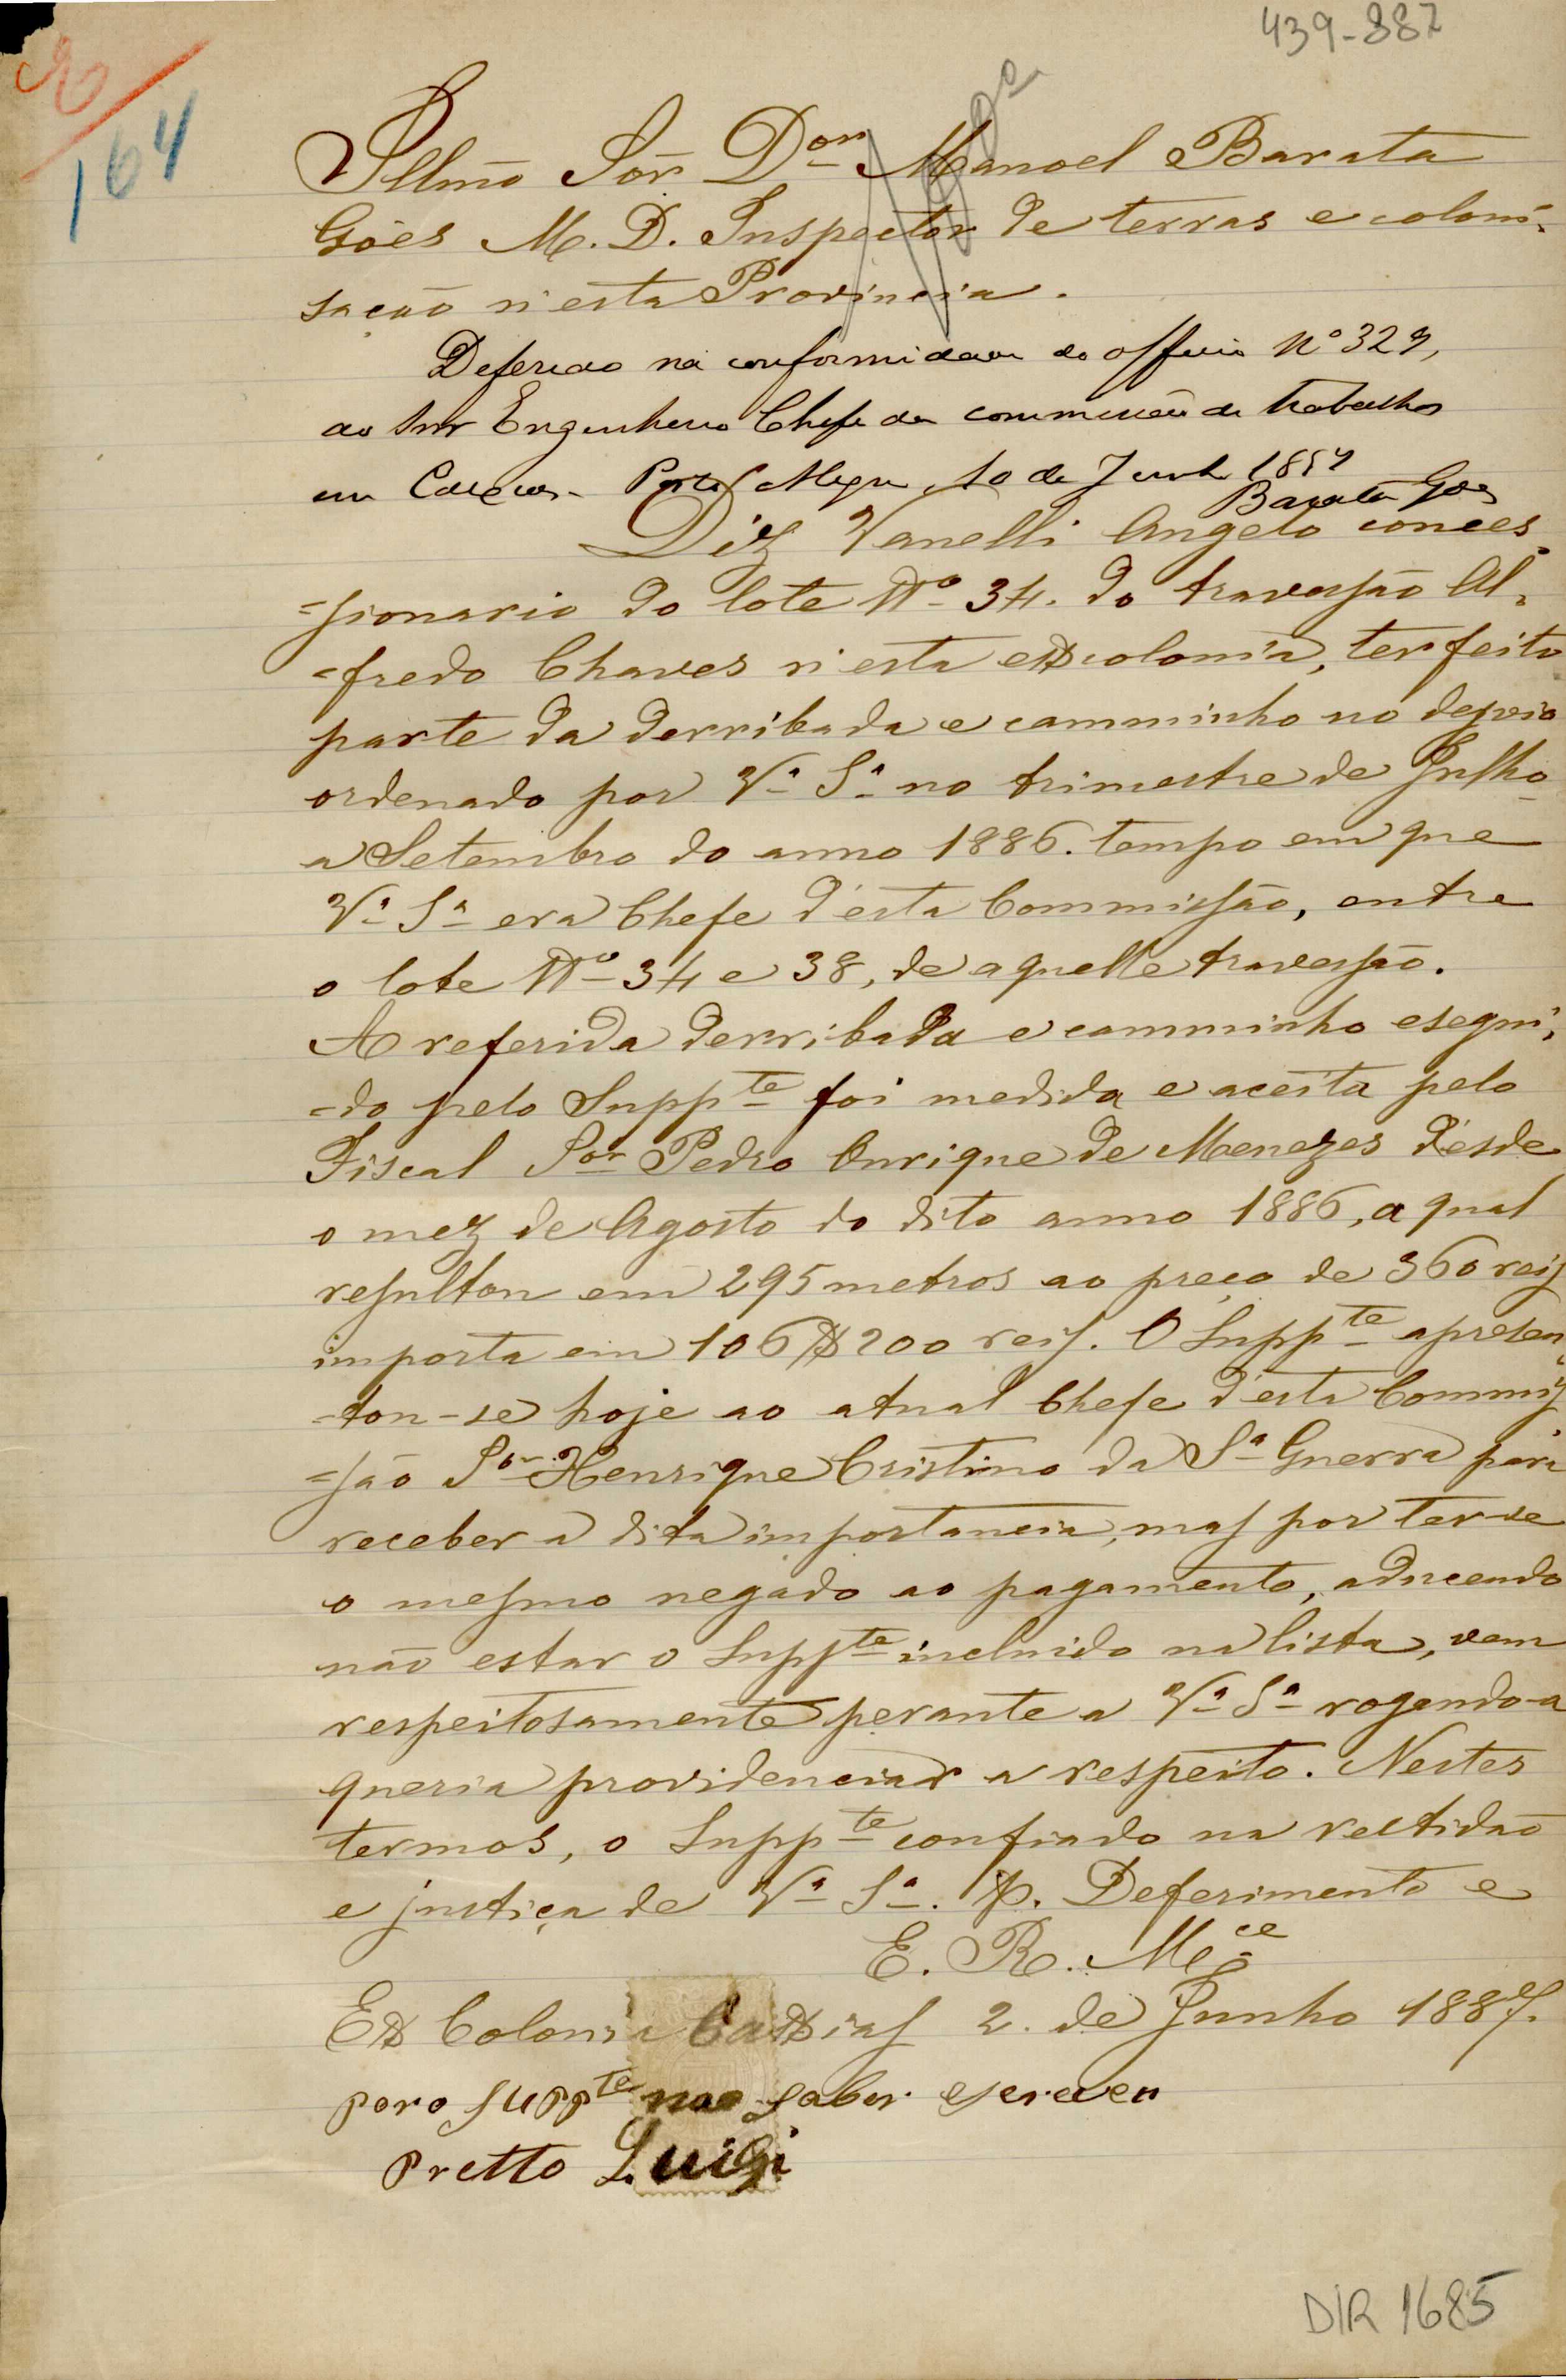 439-887
164
Illmo Sor Dor Manoel Barata
Góes M. D. Inspector de terras e coloni-
sação n'esta Provincia.
Deferido na conformidade do officio Nº 329,
ao Snr Engenheiro Chefe da commissão de trabalhos
em Caxias. Porto Alegre, 10 de Junho 1887
Barata Góes
Diz Vanelli Angelo conces-
=sionario do lote Nº 34. do travessão Al-
=fredo Chaves n'esta exscolonia, ter feito
parte da derribada e camminho no desvio
ordenado por Vª Sª no trimestre de Julho
a Setembro do anno 1886. tempo em que
Vª Sª era Chefe d'esta Commissão, entre
o lote Nº 34 e 38, de aquelle travessão.
A referida derribada e camminho esegui-
=do pelo Suppte foi medida e aceita pelo
Fiscal Sor Pedro Onrique de Menezes désde
o mez de Agosto do dito anno 1886, a qual
resultou em 295 metros ao preço de 360 reis
importa em 106$200 reis. O Suppte apresen-
=tou-se hoje ao atual Chefe d'esta Commis
=são Sor Henrique Cristino da Sª Guerra para
receber a dita importancia, mas por ter-se
o mesmo negádo ao pagamento, aducendo
não estar o Suppte incluido na lista, vem
respeitosamente perante a Vª Sª rogando-a
queria providenciar a respeito. Nestes
termos, o Suppte confiado na rectidão
e justiça de Vª Sª. P. Deferimento e
E. R. Mce
Ex Colonia Caxias 2. de Junho 1887.
poro suppte nao saber screver
Pretto Luigi
DIR 1685